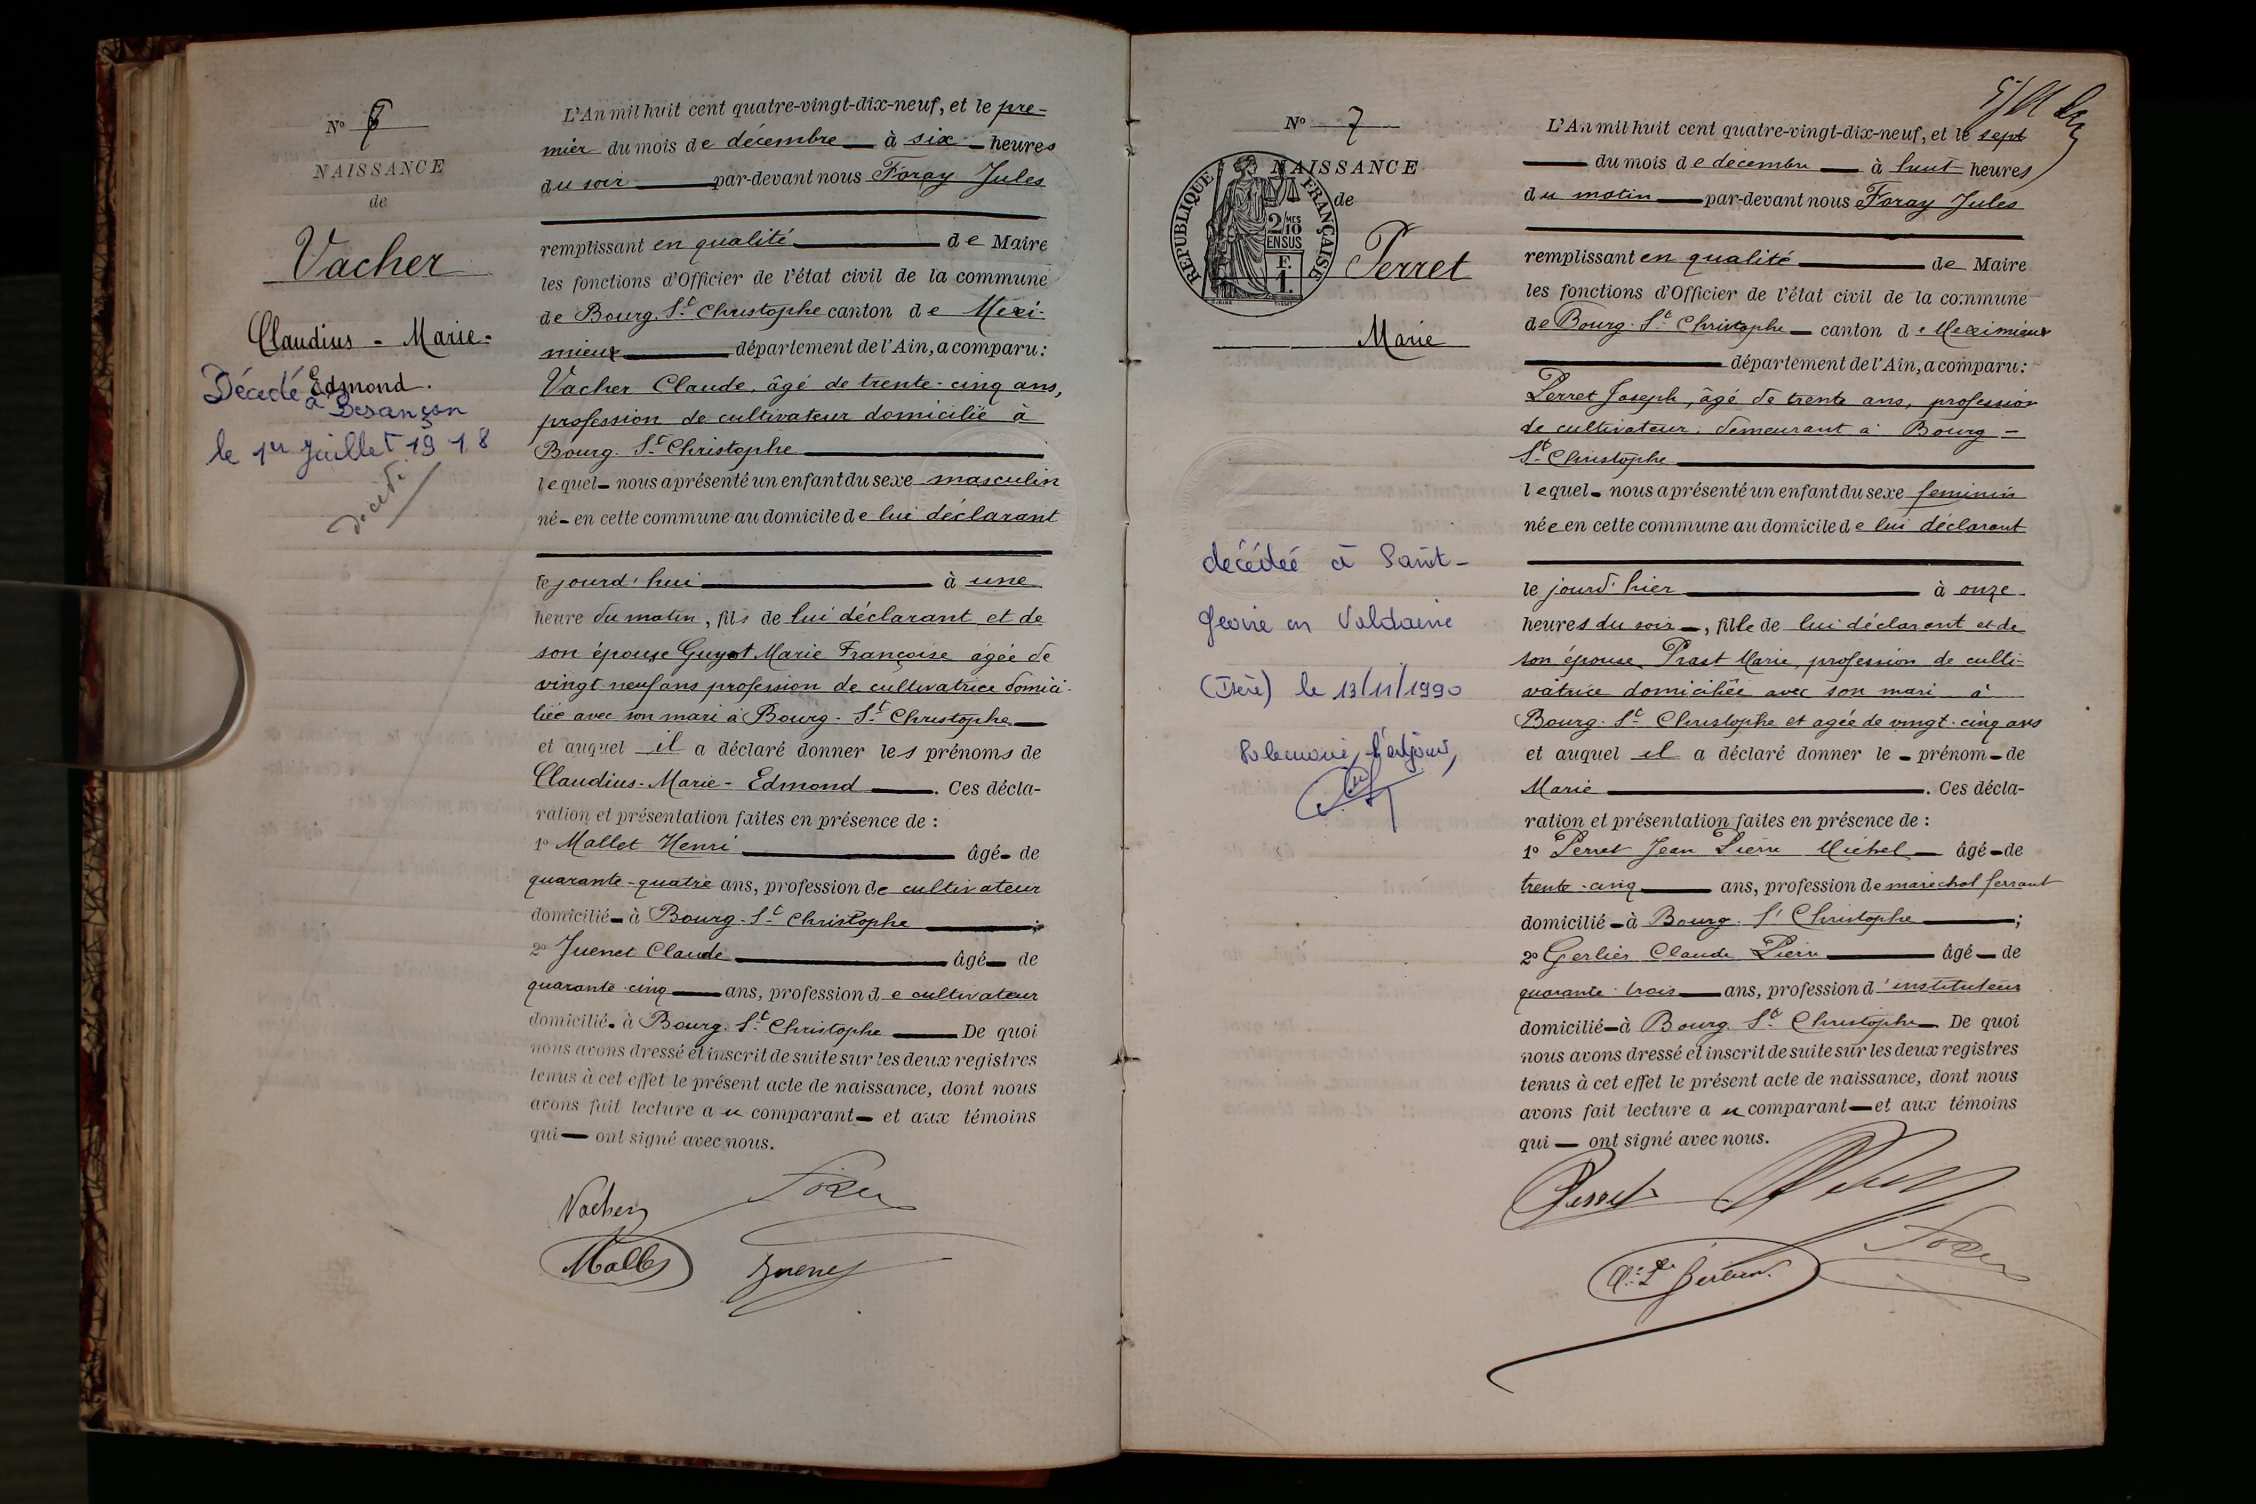 N° 6
NAISSANCE
de
Vacher
Claudius - Marie -
Edmond.
Décédé
à Besançon
le 1er Juillet 1918
décédé
L'An mil huit cent quatre-vingt-dix-neuf, et le pre-
mier du mois de décembre à six heures
du soir par-devant nous Foray Jules
remplissant en qualité de Maire
les fonctions d'Officier de l'état civil de la commune
de Bourg-St Christophe canton de Mexi-
mieux département de l'Ain, a comparu :
Vacher Claude, âgé de trente-cinq ans,
profession de cultivateur domicilié à
Bourg-St Christophe
lequel nous a présenté un enfant du sexe masculin
né en cette commune au domicile de lui déclarant
le jourd'hui à une
heure du matin, fils de lui déclarant et de
son épouse Guyot Marie Françoise agée de
vingt-neuf ans profession de cultivatrice domici-
liée avec son mari à Bourg-St Christophe
et auquel il a déclaré donner les prénoms de
Claudius-Marie-Edmond. Ces décla-
ration et présentation faites en présence de :
1° Mallet Henri âgé de
quarante-quatre ans, profession de cultivateur
domicilié à Bourg-St Christophe ;
2° Juenet Claude âgé de
quarante-cinq ans, profession de cultivateur
domicilié à Bourg-St Christophe De quoi
nous avons dressé et inscrit de suite sur les deux registres
tenus à cet effet le présent acte de naissance, dont nous
avons fait lecture au comparant et aux témoins
qui ont signé avec nous.
Vacher
Foray
Mallet
Juenet
N° 7
NAISSANCE
de
RÉPUBLIQUE FRANÇAISE
2/10 MES
EN SUS
F.
1.
Perret
Marie
décédée à Saint-
Geoire en Valdaine
(Isère) le 13/11/1990
L'An mil huit cent quatre-vingt-dix-neuf, et le sept
du mois de décembre à huit heures
du matin par-devant nous Foray Jules
remplissant en qualité de Maire
les fonctions d'Officier de l'état civil de la commune
de Bourg-St Christophe canton de Meximieux
département de l'Ain, a comparu :
Perret Joseph, âgé de trente ans, profession
de cultivateur, demeurant à Bourg-
St Christophe
lequel nous a présenté un enfant du sexe feminin
née en cette commune au domicile de lui déclarant
le jourd'hier à onze
heures du soir, fille de lui déclarant et de
son épouse Prast Marie, profession de culti-
vatrice domiciliée avec son mari à
Bourg-St Christophe et agée de vingt-cinq ans
et auquel il a déclaré donner le prénom de
Marie. Ces décla-
ration et présentation faites en présence de :
1° Perret Jean Pierre Michel âgé de
trente-cinq ans, profession de maréchal ferrant
domicilié à Bourg-St Christophe ;
2° Gerlier Claude Pierre âgé de
quarante-trois ans, profession d'instituteur
domicilié à Bourg-St Christophe. De quoi
nous avons dressé et inscrit de suite sur les deux registres
tenus à cet effet le présent acte de naissance, dont nous
avons fait lecture au comparant et aux témoins
qui ont signé avec nous.
Perret
Foray
Cl. P. Gerlier